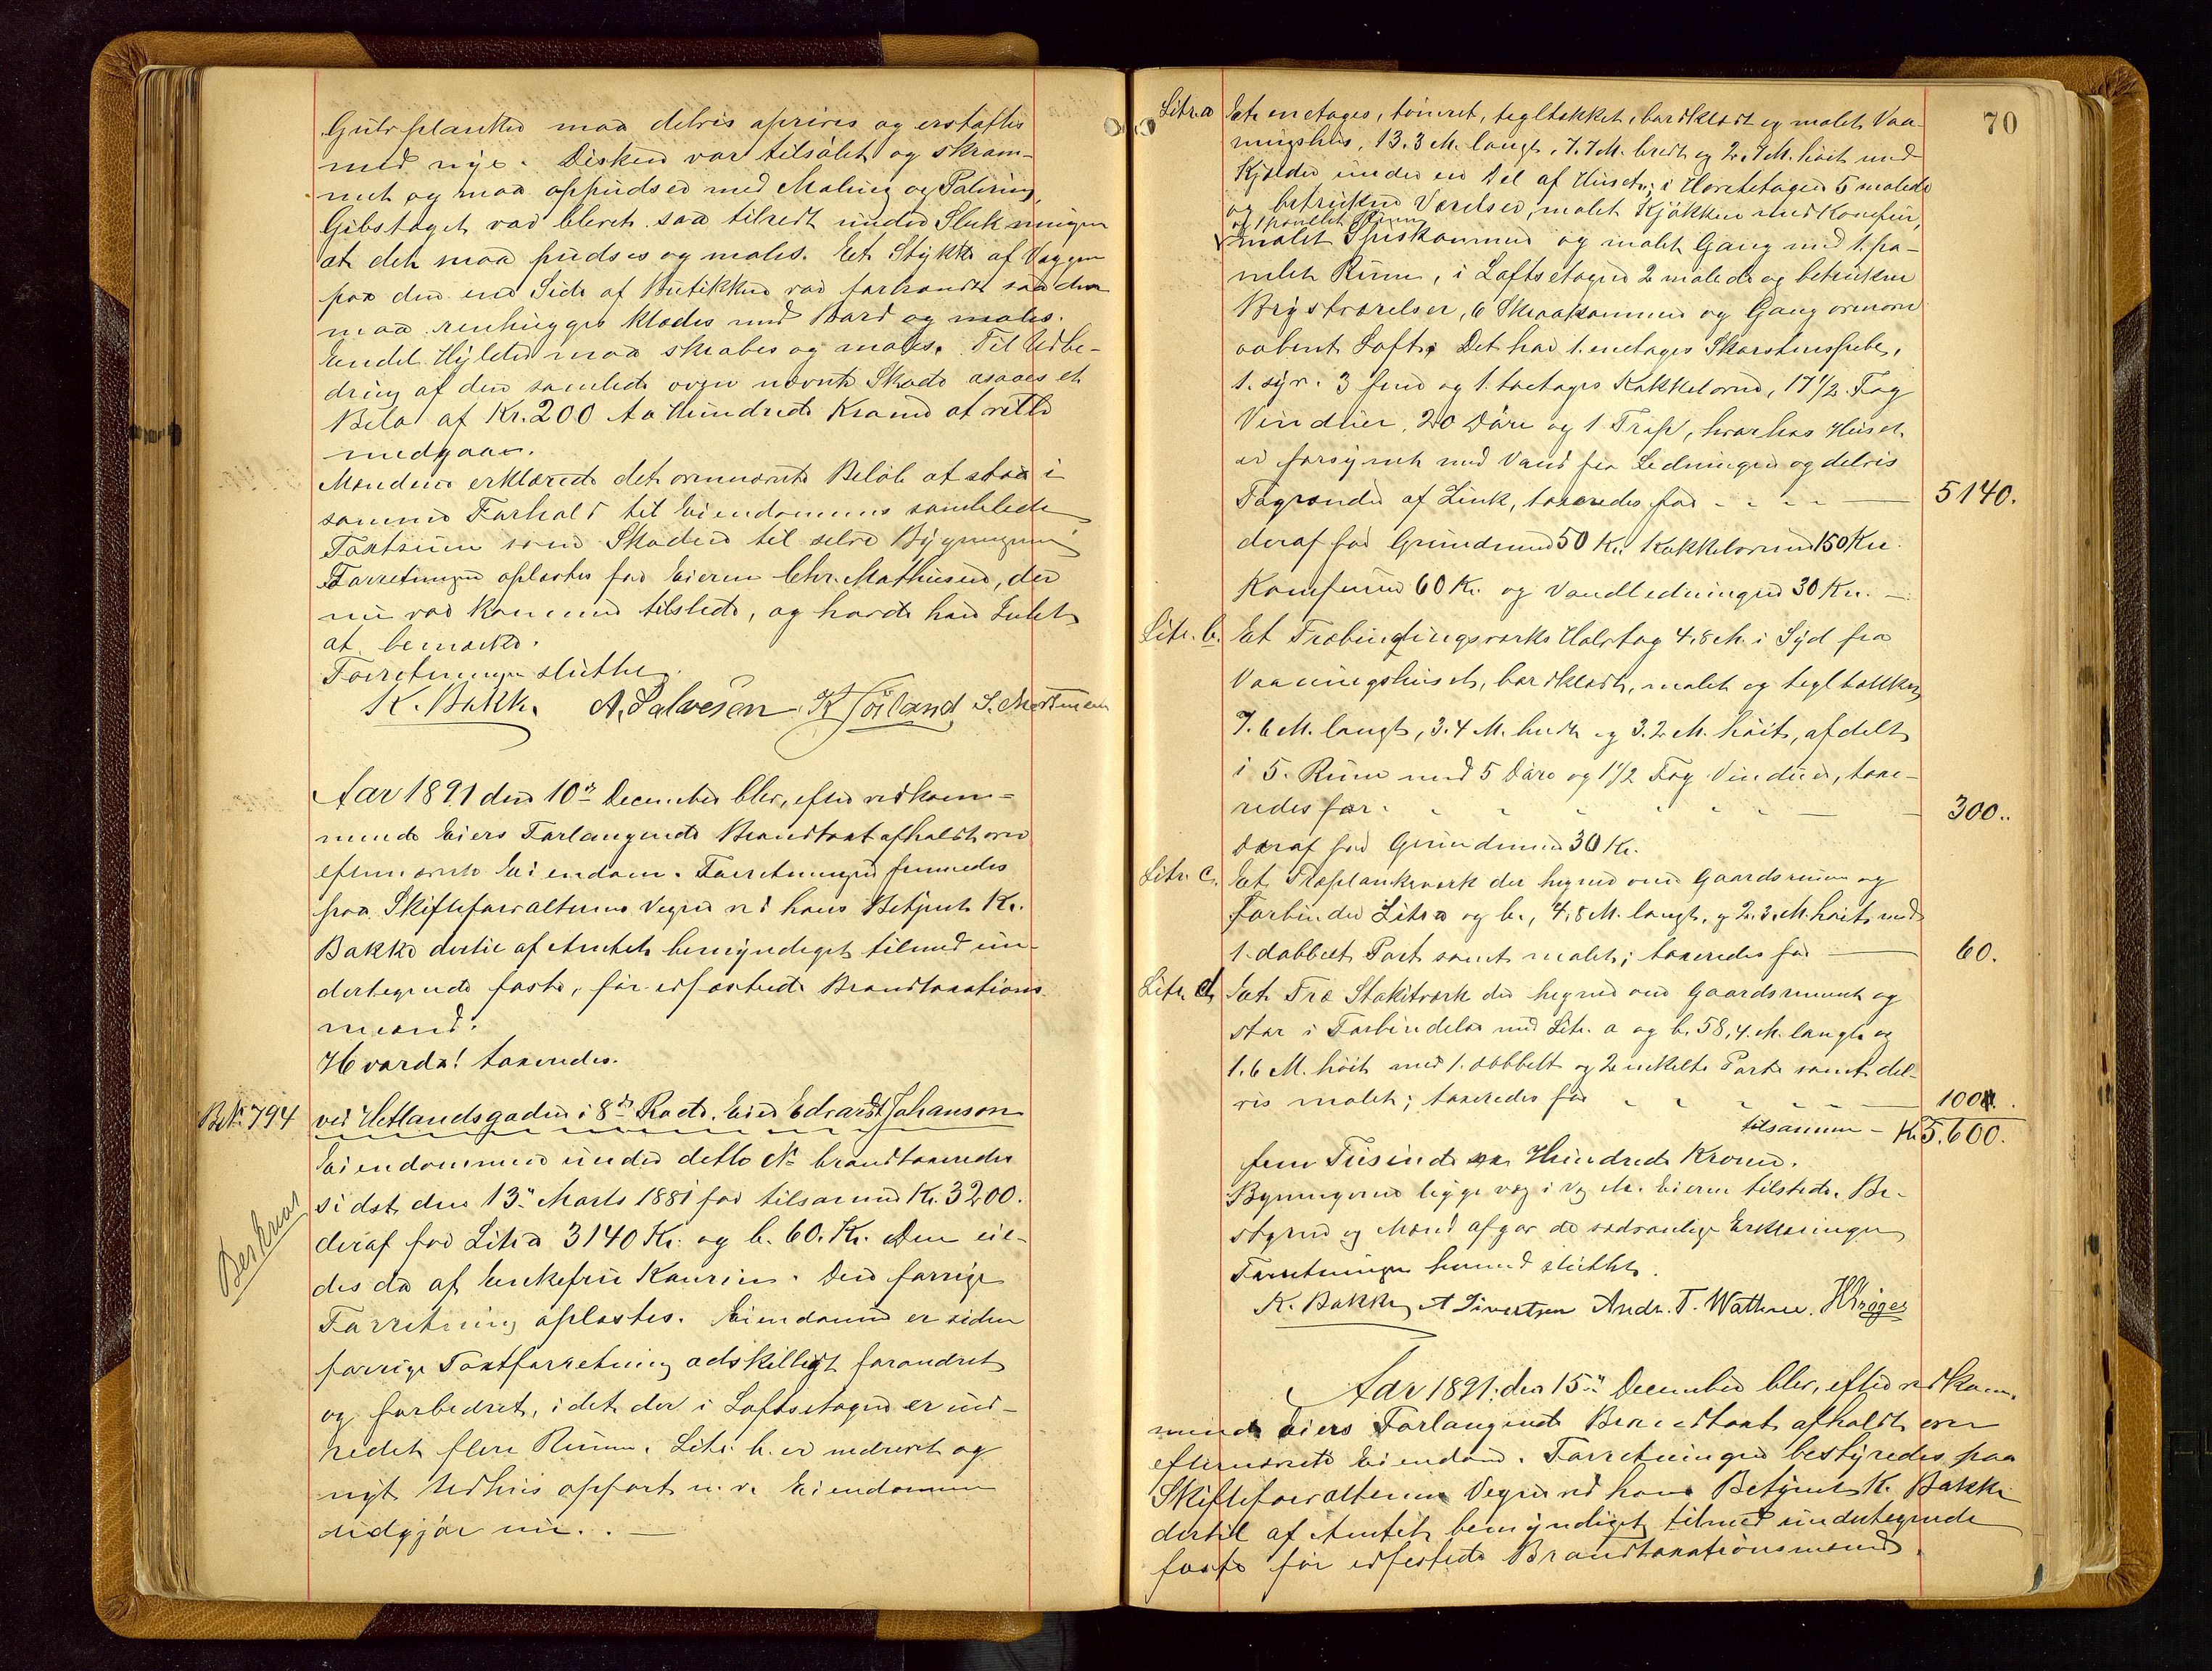 Gulvplanker maa delvis oprives og erstattes
med nye. Disken var tilsølet og skram-
met og maa oppudses med Maling og Polering,
Gibstaget var blevet saa tilredt under Slukningen
at det maa pudses og males. Et Stykke af Væggen
paa den ene Side af Butikken var forbrændt saa den
maa renhugges klædes med Bord og males.
Endel Hylder maa skrabes og males. Til Udbe-
dring af den samlede oven nævnte Skade ansaaes et
Beløb af Kr. 200 to Hundrede Kroner at ville
medgaa.
Mændene erklærede det ovennævnte Beløb at staa i
samme Forhold til Eiendommens samlede
Taxtsum som Skaden til selve Bygningen
Forretningen oplæstes for Eieren Chr. Mathiesen, der
nu var kommen tilstede, og havde han Intet
at bemærke.
Forretningen sluttet.
K. Bakke. A. Salvesen K Höiland S. Mortensen
Aar 1891 den 10de December blev, efter vedkom-
mende Eiers Forlangende Brandtaxt afholdt over
efternævnte Eiendom. Forretningen fremmedes
paa Skifteforvalterens Vegne ved hans Betjent K.
Bakke dertil af Amtet bemyndiget tilmed un-
dertegnede faste, før edfæstede Brandtaxations-
mænd.
Hvorda! taxeredes.
B.№ 794 ved Hetlandsgaden i 8de Rode. Eier Edvard Johanson
Eiendommen under dette № brandtaxeredes
sidst den 13de Marts 1881 for tilsammen Kr. 3200.
deraf for Litra 3140 Kr. og b. 60. Kr. Den eie-
des da af Enkefru Kaurin. Den forrige
Beskrevet
Forretning oplæstes. Eiendommen er siden
forrige Taxtforretning adskilligt forandret
og forbedret, idet der i Loftsetagen er ind-
redet flere Rum. Litr. b. er nedrevet og
nyt Udhus opført m. v. Eiendommen
udgjør nu. . —
70
Litr. a Et enetages, tømret, tegltækket, bordklædt og malet Vaa-
ningshus, 13.3 M. langt, 7.7 M. bredt og 2.7 M. høit med
Kjælder under en Del af Huset; i Hovedetagen 5 malede
og betrukne Værelser, malet Kjøkken med Komfur,
og 1 panelet Rum
malet Spiskammer og malet Gang med 1. pa-
nelet Rum, i Loftsetagen 2 malede og betrukne
Brystværelser, 6 Skraakammer og Gang ovenover
aabent Loft. Det har 1. enetages Skorstenspibe,
1. Kakkelovne, 17 1/2 Fag
Vinduer, 20 Døre og 1 Trap, hvorhos Huset
er forsynet med Vand fra Ledningen og delvis
Tagrender af Zink, taxeredes for - - - — 5140.
deraf for Grundmur 50 Kr. Kakkelovnene 150 Kr.
Komfuren 60 Kr. og Vandledningen 30 Kr. —
Litr. b. Et Træbindingsværks Halvtag 4.8 M. i Syd fra
Vaaningshuset, bordklædt, malet og tegltækket
7.6 M. langt, 3.4 M. bredt og 3.2 M. høit, afdelt
i 5. Rum med 5 Døre og 1 1/2 Fag Vinduer, taxe-
redes for - - - - - — 300..
deraf for Grundmur 30 Kr.
Litr. c. Et Træplankeværk der hegner om Gaardsrum og
forbinder Litr. a og b., 4,8 M. langt, og 2.3. M. høit med
1. dobbelt Port samt malet; taxeredes for — 60.
Litr. d Et Træ Stakitværk der hegner om Gaardsrummet og
staar i Forbindelse med Litr. a og b. 58,4. M. langt og
1.6 M. høit med 1. dobbelt og 2 enkelte Porte samt del-
vis malet; taxeredes for - - - - — 100.
tilsammen - Kr 5.600.
fem Tusinde sex Hundrede Kroner.
Bygningerne ligge væg i væg. Eieren tilstede. Be-
styrer og Mænd afgav de sædvanlige Erklæringer
Forretningen hermed sluttet.
K. Bakke A Sivertsen Andr. T. Wathne. H Krøger
Aar 1891. den 15de December blev, efter vedkom-
mende Eiers Forlangende Brandtaxt afholdt over
efternævnte Eiendom. Forretningen bestyredes paa
Skifteforvalterens Vegne ved hans Betjent K. Bakke
dertil af Amtet bemyndiget tilmed undertegnede
faste før edfæstede Brandtaxationsmænd.